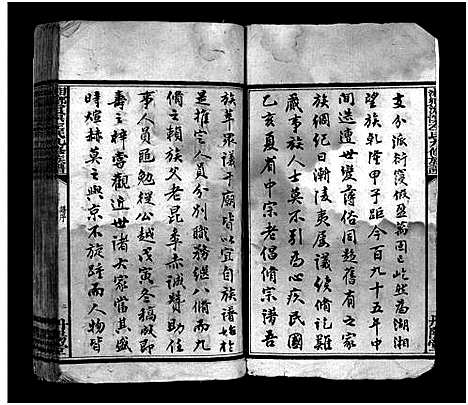 支分派衍簇佔盈萬固已屹然為湖湘
望族乾隆甲子距今百九十五年中
間迭遭世變薄俗同趨舊有之家
族倜紀日漸陵夷属議續修記難
蕆事族人士莫不引為心疚民國
乙亥夏有中宗老倡修宗譜吾
族羣議于廟皆以宜自族譜始於
是推定人員分別職務繼八脩而九
脩之賴族父老昆季赤誠贊助任
事人員黽勉從公越戊寅冬稿成即
壽之梓嘗觀近世諸大家當其盛
時煊赫莫之與京不旋踵而人物皆
譜序